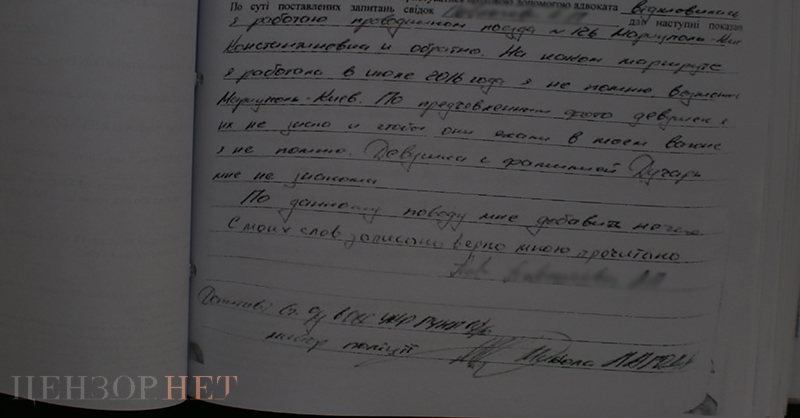 По суті поставлених запитань свідок
допомогою адвоката відмовляюсь
дав наступні показання
я работаю проводником поезда №126 Мариуполь-Киев
Константиновка и обратно. На каком маршруте
я работала в июле 2016 года я не помню возможно
Мариуполь-Киев. По предъявленным фото девушек я
их не знаю и чтобы они ехали в моем вагоне
я не помню. Девушка с фамилией Дучарь
мне не знакома
По данному поводу мне добавить нечего
С моих слов записано верно мною прочитано
майор поліції
ЦЕНЗОР.НЕТ